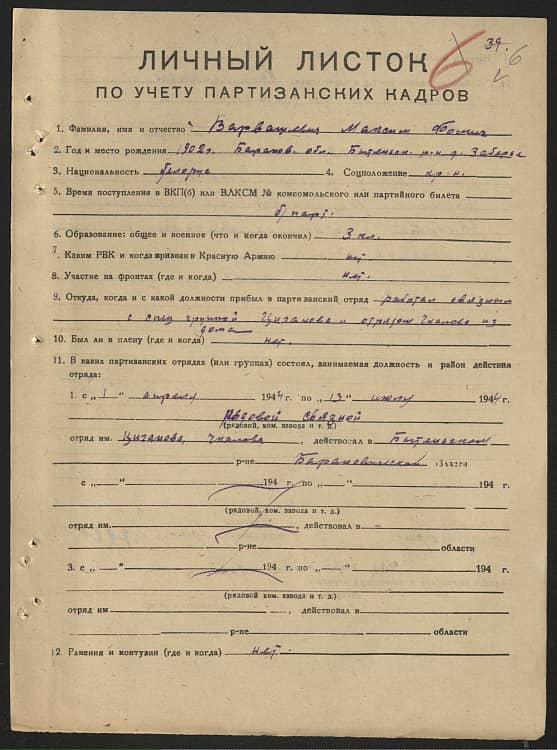 39.
6
6
ЛИЧНЫЙ ЛИСТОК
ПО УЧЕТУ ПАРТИЗАНСКИХ КАДРОВ
1. Фамилия, имя и отчество Варвашевич Максим Фомич
2. Год и место рождения 1902 г. Баранов. обл. Бытенск. р-н д. Заберье
3. Национальность белорус 4. Соцположение кр-н.
5. Время поступления в ВКП(б) или ВЛКСМ № комсомольского или партийного билета
б/парт.
6. Образование: общее и военное (что и когда окончил) 3 кл.
7. Каким РВК и когда призван в Красную Армию нет
8. Участие на фронтах (где и когда) нет.
9. Откуда, когда и с какой должности прибыл в партизанский отряд работал связным
с спец группой Цыганова и отрядом Чкалова из
дома
10. Был ли в плену (где и когда) нет.
11. В каких партизанских отрядах (или группах) состоял, занимаемая должность и район действия
отряда:
1. с „1" апреля 1944 г. по „13" июля 1944 г.
связной
(рядовой, ком. взвода и т. д.)
отряд им. Цыганова, Чкалова, действовал в Бытеньском
р-не Барановичской области
с „ " 194 г. по „ " 194 г.
(рядовой, ком. взвода и т. д.)
отряд им. , действовал в
р-не области
3. с „ " 194 г. по „ " 194 г.
(рядовой, ком. взвода и т. д.)
отряд им , действовал в
р-не области
12. Ранения и контузии (где и когда) нет.